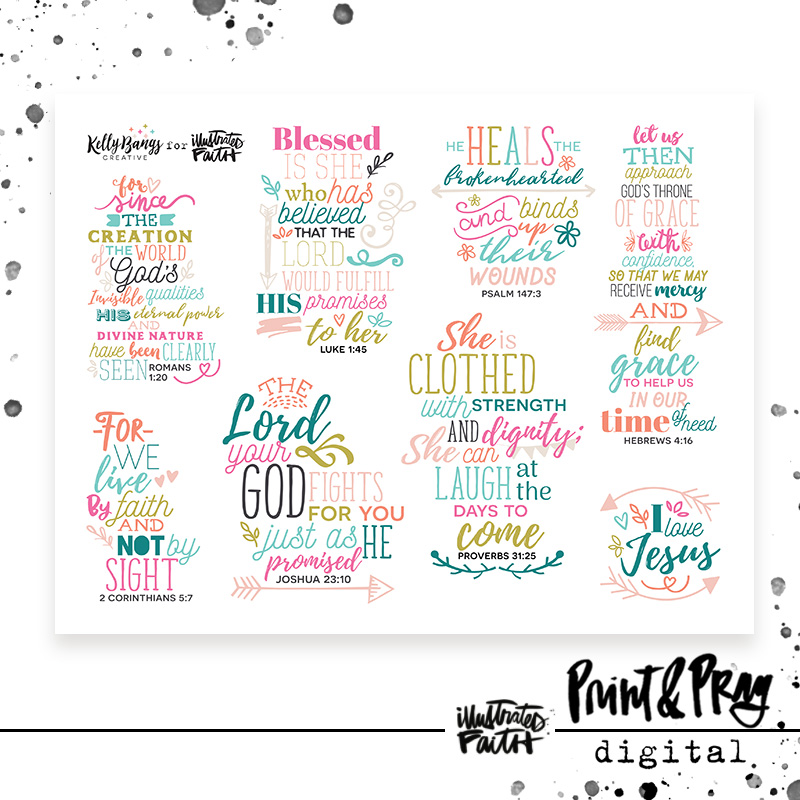 Kelly Bangs for illustrated
CREATIVE FAITH
for
since
THE
CREATION
of THE WORLD
God's
Invisible qualities
HIS eternal power
AND
DIVINE NATURE
have been CLEARLY
SEEN ROMANS
1:20
Blessed
IS SHE
who has
believed
THAT THE
LORD
WOULD FULFILL
HIS promises
to her
LUKE 1:45
HE HEALS THE
brokenhearted
and binds
up
their
WOUNDS
PSALM 147:3
let us
THEN
approach
GOD'S THRONE
OF GRACE
with
confidence,
SO THAT WE MAY
RECEIVE mercy
AND
find
grace
TO HELP US
IN OUR
time of need
HEBREWS 4:16
-FOR-
WE
live
By faith
AND
NOT by
SIGHT
2 CORINTHIANS 5:7
THE
Lord
your
GOD FIGHTS
FOR YOU
just as HE
promised
JOSHUA 23:10
She is
CLOTHED
with STRENGTH
AND dignity;
She can
LAUGH at
the
DAYS TO
come
PROVERBS 31:25
I love
Jesus
illustrated
FAITH
Print & Pray
digital